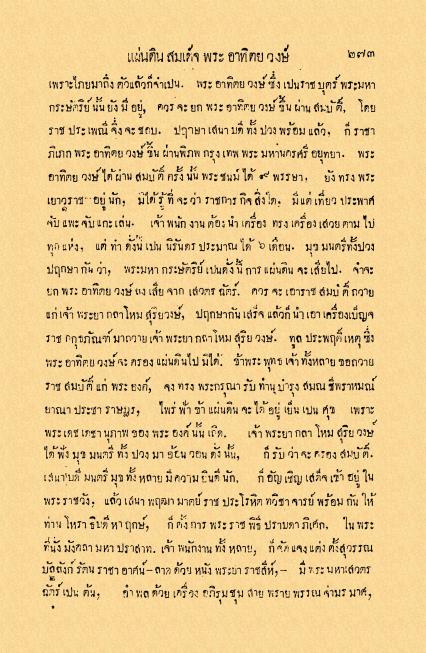 แผ่นดิน สมเด็จ พระ อาทิตย วงษ์ ๒๗๓
เพราะไภยมาถึง ตัวแล้วก็จำเปน. พระ อาทิตย วงษ์ ซึ่ง เปนราช บุตร์ พระมหา
กระษัตริย์ นั้น ยัง มี อยู่, ควร จะ ยก พระ อาทิตย วงษ์ ขึ้น ผ่าน สมบัติ์, โดย
ราช ประเพณี จึ่ง จะ ชอบ. ปฤกษา เสนา บดี ทั้ง ปวง พร้อม แล้ว, ก็ ราชา
ภิเภก พระ อาทิตย วงษ์ ขึ้น ผ่านพิภพ กรุง เทพ พระ มหานครศรี อยุทยา. พระ
อาทิตย วงษ์ ได้ ผ่าน สมบัติ์ ครั้ง นั้น พระ ชนม์ ได้ ๙ พรรษา, ยัง ทรง พระ
เยาวราช อยู่ นัก, มิได้ รู้ ที่ จะ ว่า ราชการ กิจ สิ่งใด. มี แต่ เที่ยว ประพาศ
จับ แพะ จับ แกะ เล่น. เจ้า พนัก งาน ต้อง นำ เครื่อง ทรง เครื่อง เสวย ตาม ไป
ทุก แห่ง, แต่ ทำ ดั่งนี้ เปน นิรันตร ประมาณ ได้ ๖ เดือน. มุข มนตรี ทั้งปวง
ปฤกษา กัน ว่า, พระมหา กระษัตริย์ เปนดั่ง นี้ การ แผ่นดิน จะ เสีย ไป. จำจะ
ยก พระ อาทิตย วงษ์ ลง เสีย จาก เสวตร ฉัตร์. ควร จะ เอาราช สมบัติ์ ถวาย
แก่ เจ้า พระยา กลาโหม สุริยวงษ์, ปฤกษากัน เสร็จ แล้วก็ นำ เอา เครื่องเบ็ญจ
ราช กกุธภัณฑ์ มาถวาย เจ้า พระยา กลาโหม สุริย วงษ์. ทูล ประพฤติ์ เหตุ ซึ่ง
พระ อาทิตย วงษ์ จะ ครอง แผ่นดินไป มิได้. ข้าพระ พุทธ เจ้าทั้งหลาย ขอถวาย
ราช สมบัติ์ แก่ พระ องค์, จง ทรง พระกรุณา รับ ทำนุ บำรุง สมณ ชีพราหมณ์
อาณา ประชา ราษฎร, ไพร่ ฟ้า ข้า แผ่นดิน จะ ได้ อยู่ เย็น เปน ศุข เพราะ
พระ เดช เดชา นุภาพ ของ พระ องค์ นั้น เถิด. เจ้า พระยา กลา โหม สุริย วงษ์
ได้ ฟัง มุข มนตรี ทั้ง ปวง มา อ้อน วอน ดั่ง นั้น, ก็ รับ ว่า จะ ครอง สมบัติ.
เสนาบดี มนตรี มุข ทั้ง หลาย มี ความ ยินดี นัก. ก็ อัญ เชิญ เสด็จ เข้า อยู่ ใน
พระ ราชวัง, แล้ว เสนา พฤฒา มาตย์ ราช ประโรหิต ทวิชา จารย์ พร้อม กัน ให้
ท่าน โหรา ธิบดี หา ฤกษ์, ก็ ตั้ง การ พระ ราช พิธี ปราบดา ภิเศก. ใน พระ
ที่นั่ง มังคลา มหา ปราสาท. เจ้า พนักงาน ทั้ง หลาย, ก็ จัด แจง แต่ง ตั้งสุวรรณ
บัลลังก์ รัตน ราชา อาศน์–ลาด ด้วย หนัง พระยา ราชสีห์,– มี พระ มหาเสวตร
ฉัตร์ เปน ต้น, อำ พล ด้วย เครื่อง อภิรุม ชุม สาย พราย พรรณ จามร มาศ,